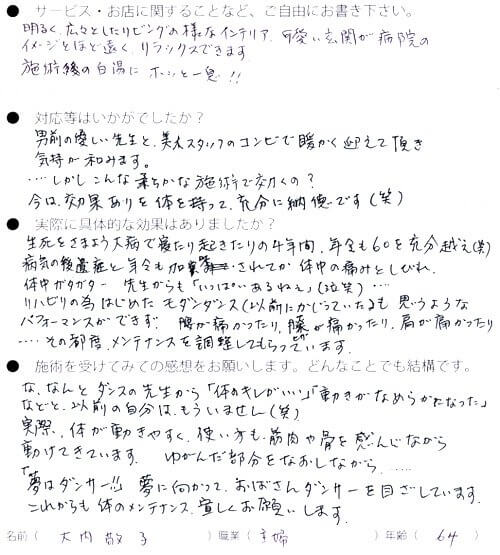 ● サービス・お店に関することなど、ご自由にお書き下さい。
明るく、広々としたリビングの様なインテリア、可愛い玄関が病院の
イメージとほど遠く、リラックスできます
施術後の白湯に ホッと一息!!
● 対応等はいかがでしたか?
男前の優しい先生と、美人スタッフのコンビで暖かく迎えて頂き
気持が和みます。
‥‥しかしこんな柔らかな施術で効くの?
今は、効果ありを体を持って、充分に納得です(笑)
● 実際に具体的な効果はありましたか?
生死をさまよう大病で寝たり起きたりの4年間、年令も60を充分越え(笑)
病気の後遺症と年令も加算されてか体中の痛みとしびれ、
体中ガタガター 先生からも「いっぱいあるねぇ」(苦笑)‥‥
リハビリの為はじめた モダンダンス(以前にかじっていた)も 思うような
パフォーマンスができず、 腰が痛かったり、膝が痛かったり、肩が痛かったり
‥‥その都度、メンテナンスを調整してもらっています
● 施術を受けてみての感想をお願いします。どんなことでも結構です。
な、なんと ダンスの先生から「体のキレがいい」「動きがなめらかになった」
などと、以前の自分は、もういません(笑)
実際、体が動きやすく、使い方も、筋肉や骨を感んじながら
動けてきています、 ゆがんだ部分をなおしながら、‥‥‥
「夢はダンサー!!」 夢に向かって、おばさんダンサーを目ざしています。
これからも 体のメンテナンス、宜しくお願いします。
名前( 大内 敬子 )職業( 主婦 )年齢( 64 )